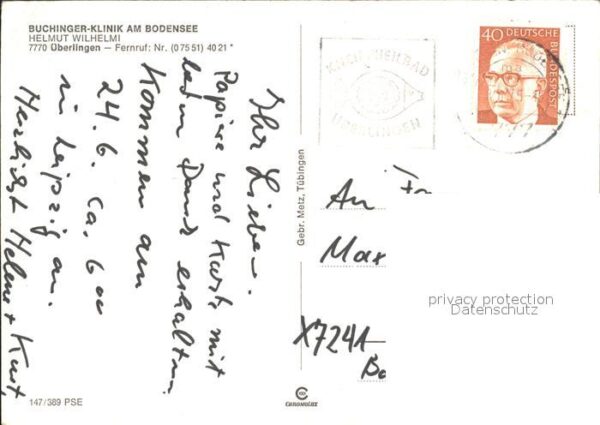 BUCHINGER-KLINIK AM BODENSEE
HELMUT WILHELMI
7770 Überlingen – Fernruf: Nr. (0 75 51) 40 21 *
Ihr Lieben.
Papiere und Karte mit
lieben Dank erhalten.
Kommen am
24.6. ca. 6
in Leipzig an.
Herzlichst Helene + Kurt.
147/389 PSE
Gebr. Metz, Tübingen
KNEIPPHEILBAD
ÜBERLINGEN
40 DEUTSCHE
BUNDESPOST
An Fr
Max
X7241
Bo
privacy protection
Datenschutz